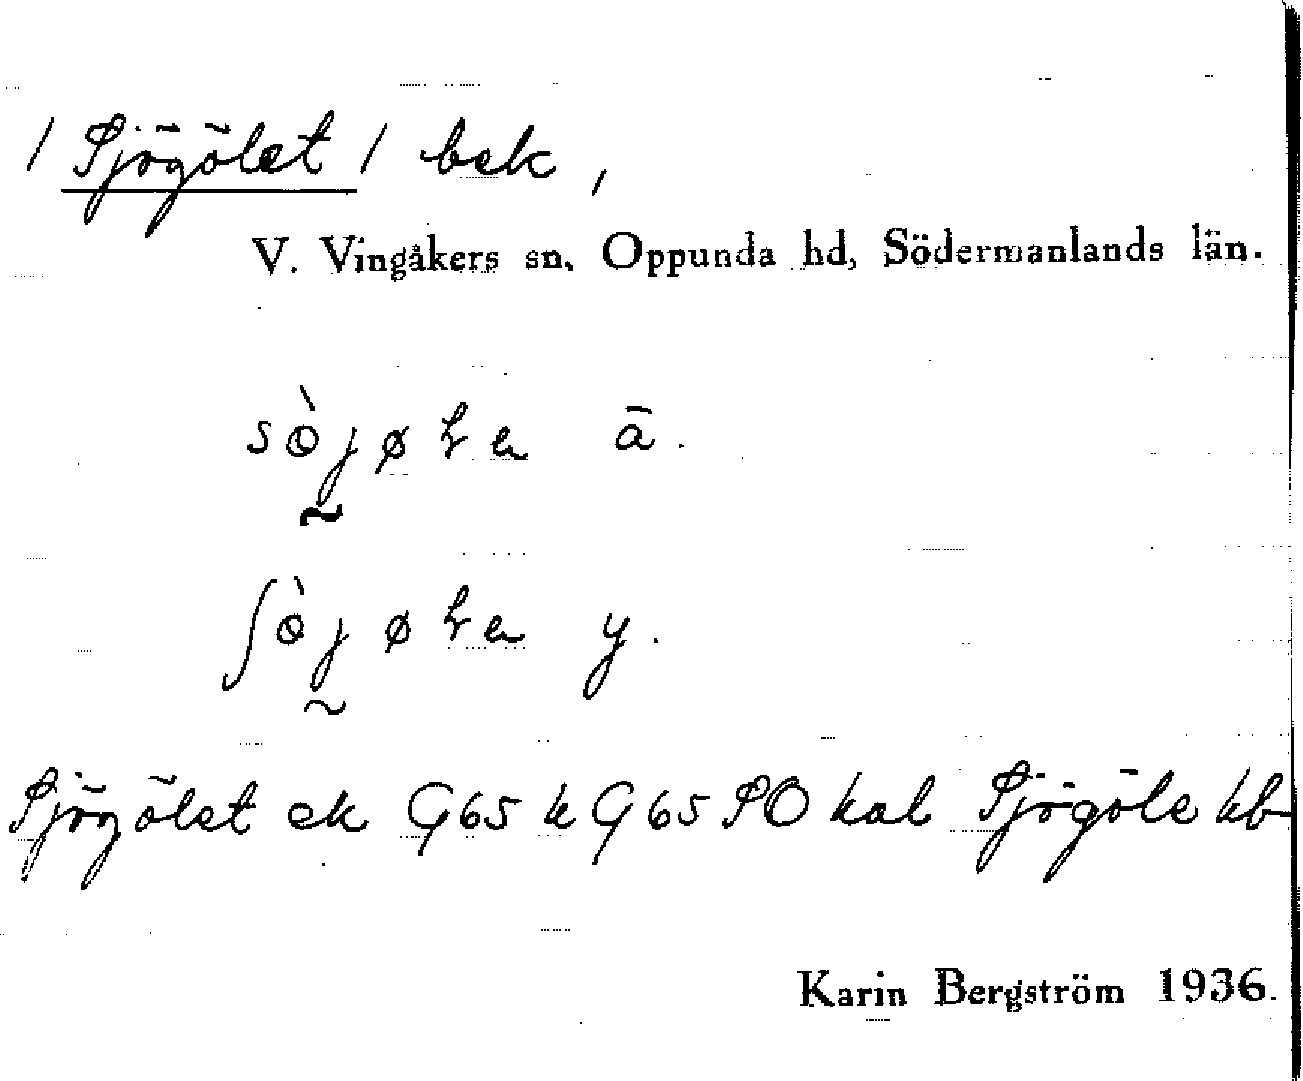 / Sjögölet / bek,
V. Vingåkers sn, Oppunda hd, Södermanlands län.
ā.
y.
Sjögölet ek G65 k G65 SO kal Sjögöle kb
Karin Bergström 1936.